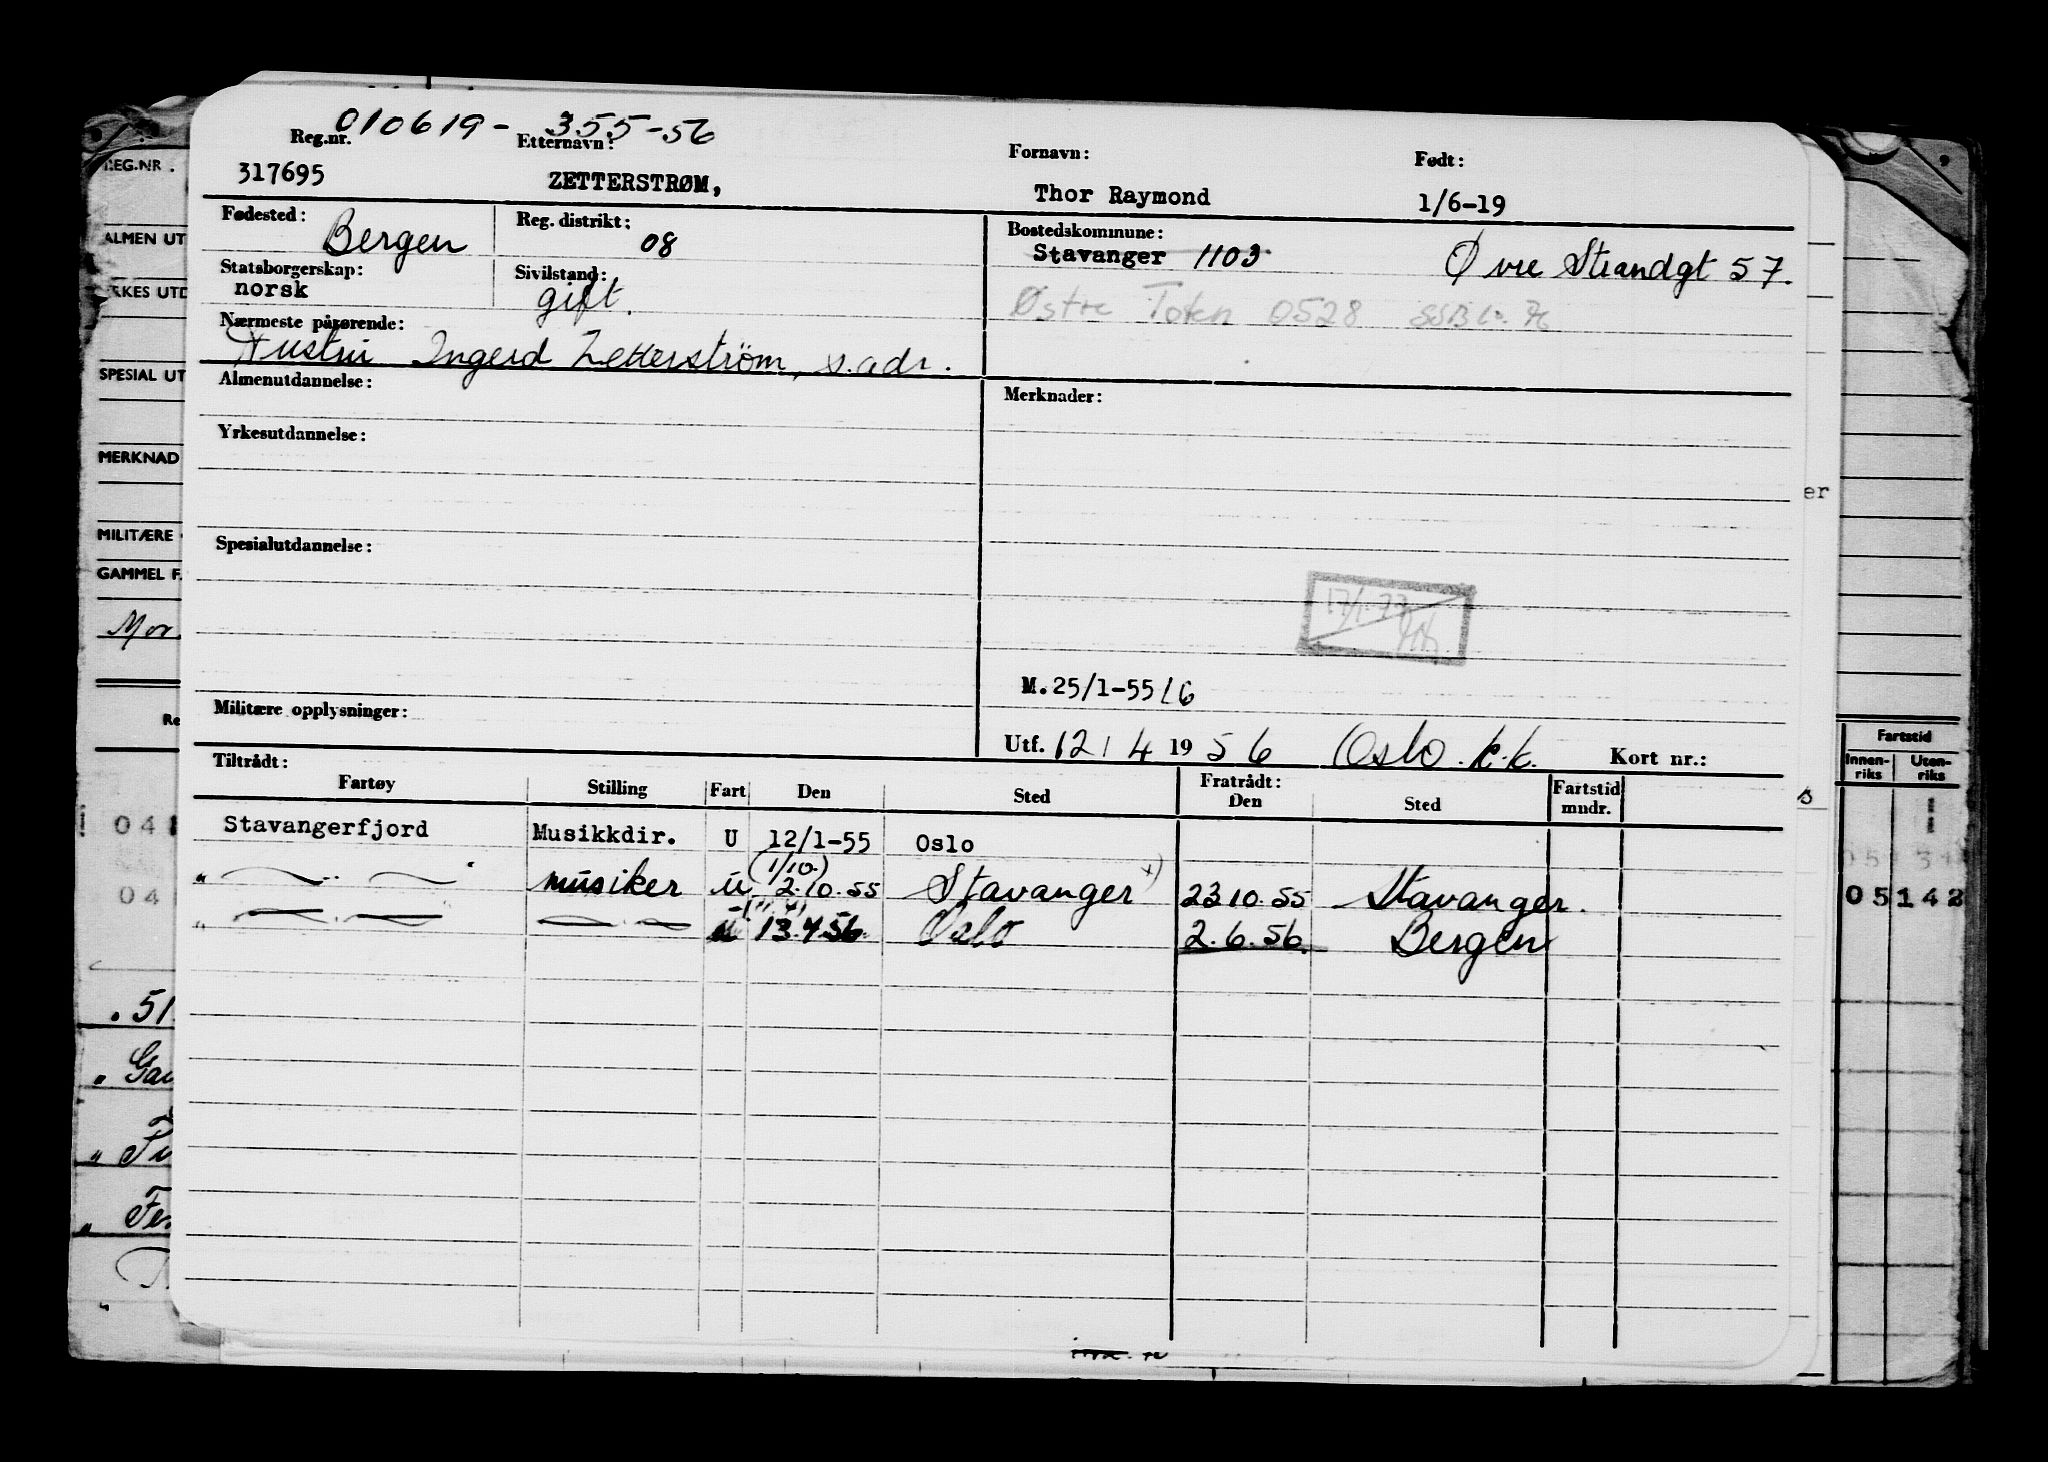 010619- 355-56
Reg.nr. Etternavn: Fornavn: Født:
317695 ZETTERSTRØM, Thor Raymond 1/6-19
Fødested: Bergen Reg. distrikt: 08 Bostedskommune:
Stavanger 1103 Øvre Strandgt 57.
Statsborgerskap: norsk Sivilstand: gift.
Østre Toten 0528 SSB
Nærmeste pårørende:
Hustru Ingerd Zetterström, s.adr.
Almenutdannelse: Merknader:
Yrkesutdannelse:
Spesialutdannelse:
M.25/1-55 LG
Militære opplysninger:
Utf. 12/4 1956 Oslo k.k. Kort nr.:
Tiltrådt: Fratrådt:
Fartøy Stilling Fart Den Sted Den Sted Fartstid mndr.
Stavangerfjord Musikkdir. U 12/1-55 Oslo
(1/10.)
" — " — musiker u 2.10.55 Stavanger x) 23.10.55 Stavanger.
" — " — — " — u 13.4.56. Oslo 2.6.56. Bergen
REG.NR.
ALMEN UT
SPESIAL UT
MERKNAD
MILITÆRE
GAMMEL F
Mor
Re
04
04
. 51
" Gau
er
s
Fartstid
Innen-riks Uten-riks
05142